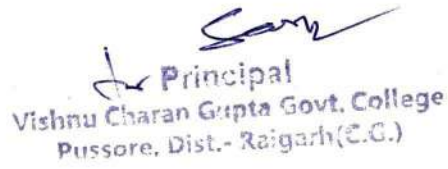 Principal
Vishnu Charan Gupta Govt. College
Pussore, Dist.- Raigarh(C.G.)